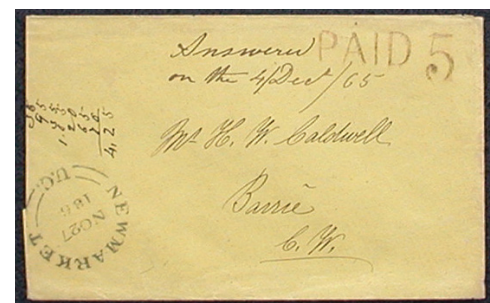 Answered
on the 4/Dect/65
PAID 5
Mr H. W. Caldwell
Barrie
C. W.
NEWMARKET
U.C.
NO 27
186
4,25